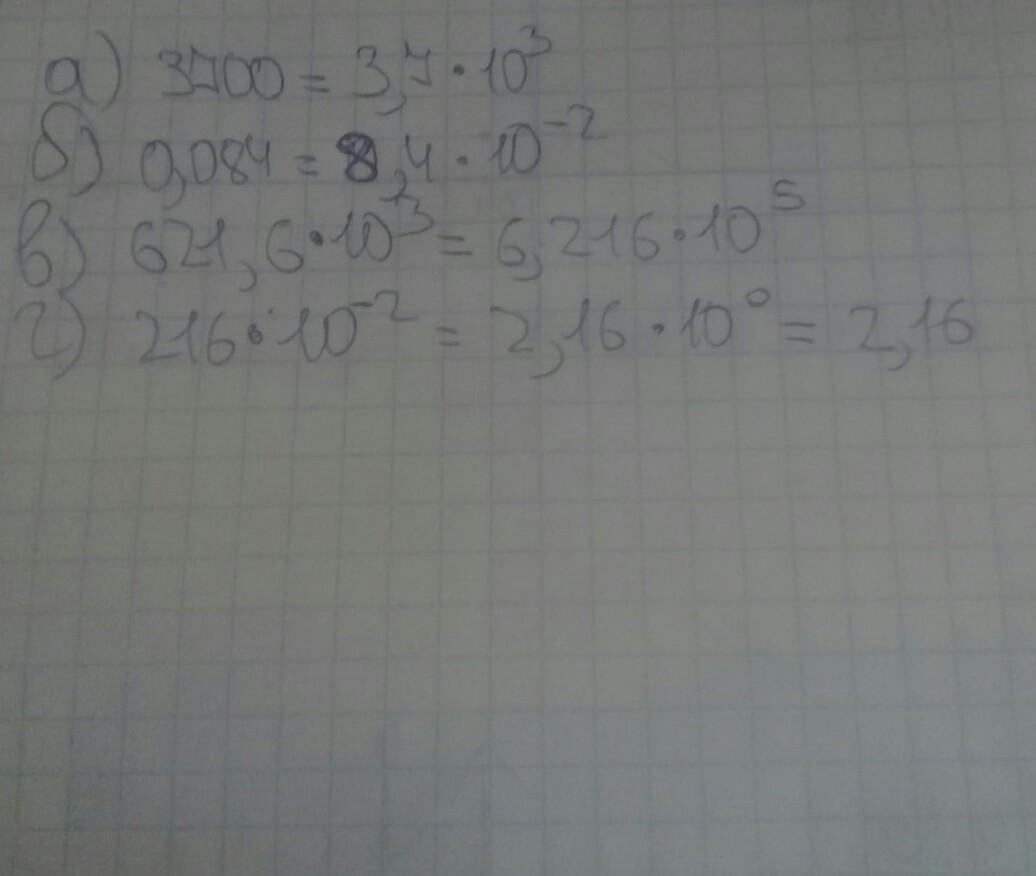 а) 3700 = 3,7 · 10³
б) 0,084 = 8,4 · 10⁻²
в) 621,6 · 10³ = 6,216 · 10⁵
г) 216 · 10⁻² = 2,16 · 10⁰ = 2,16